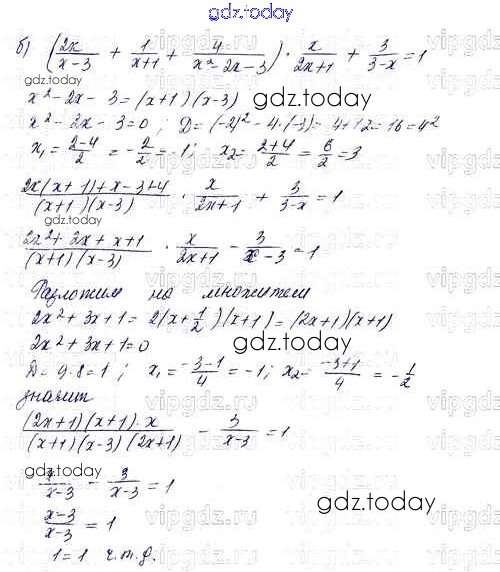 gdz.today
б) (2x/(x-3) + 1/(x+1) + 4/(x²-2x-3)) · x/(2x+1) + 3/(3-x) = 1
gdz.today
x² - 2x - 3 = (x+1)(x-3)
gdz.today
x² - 2x - 3 = 0 ; D = (-2)² - 4·(-3) = 4+12 = 16 = 4²
x₁ = (2-4)/2 = -2/2 = -1; x₂ = (2+4)/2 = 6/2 = 3
(2x(x+1)+x-3+4)/((x+1)(x-3)) · x/(2x+1) + 3/(3-x) = 1
gdz.today
(2x²+2x+x+1)/((x+1)(x-3)) · x/(2x+1) - 3/(x-3) = 1
Разложим на множители
2x² + 3x + 1 = 2(x+1/2)(x+1) = (2x+1)(x+1)
gdz.today
2x² + 3x + 1 = 0
D = 9-8 = 1 ; x₁ = (-3-1)/4 = -1; x₂ = (-3+1)/4 = -1/2
значит
((2x+1)(x+1)·x)/((x+1)(x-3)(2x+1)) - 3/(x-3) = 1
gdz.today
x/(x-3) - 3/(x-3) = 1
gdz.today
(x-3)/(x-3) = 1
1 = 1 ч.т.д.